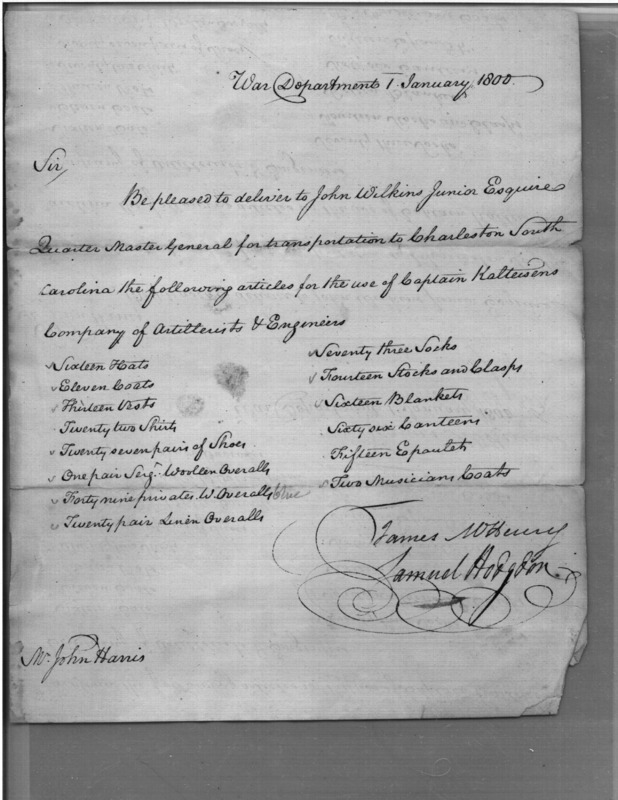 War Department 1 January 1800.
Sir
Be pleased to deliver to John Wilkins Junior Esquire
Quarter Master General for transportation to Charleston South
Carolina the following articles for the use of Captain Kalteisens
Company of Artillerists & Engineers
Sixteen Hats
Eleven Coats
Thirteen Vests
Twenty two Shirts
Twenty seven pairs of Shoes
One pair Serjt. Woollen Overalls
Forty nine privates W. Overalls blue
Twenty pair Linen Overalls
Seventy three Socks
Fourteen Stocks and Clasps
Sixteen Blankets
Sixty six Canteens
Fifteen Epaulets
Two Musicians Coats
James McHenry
Samuel Hodgdon
Mr. John Harris